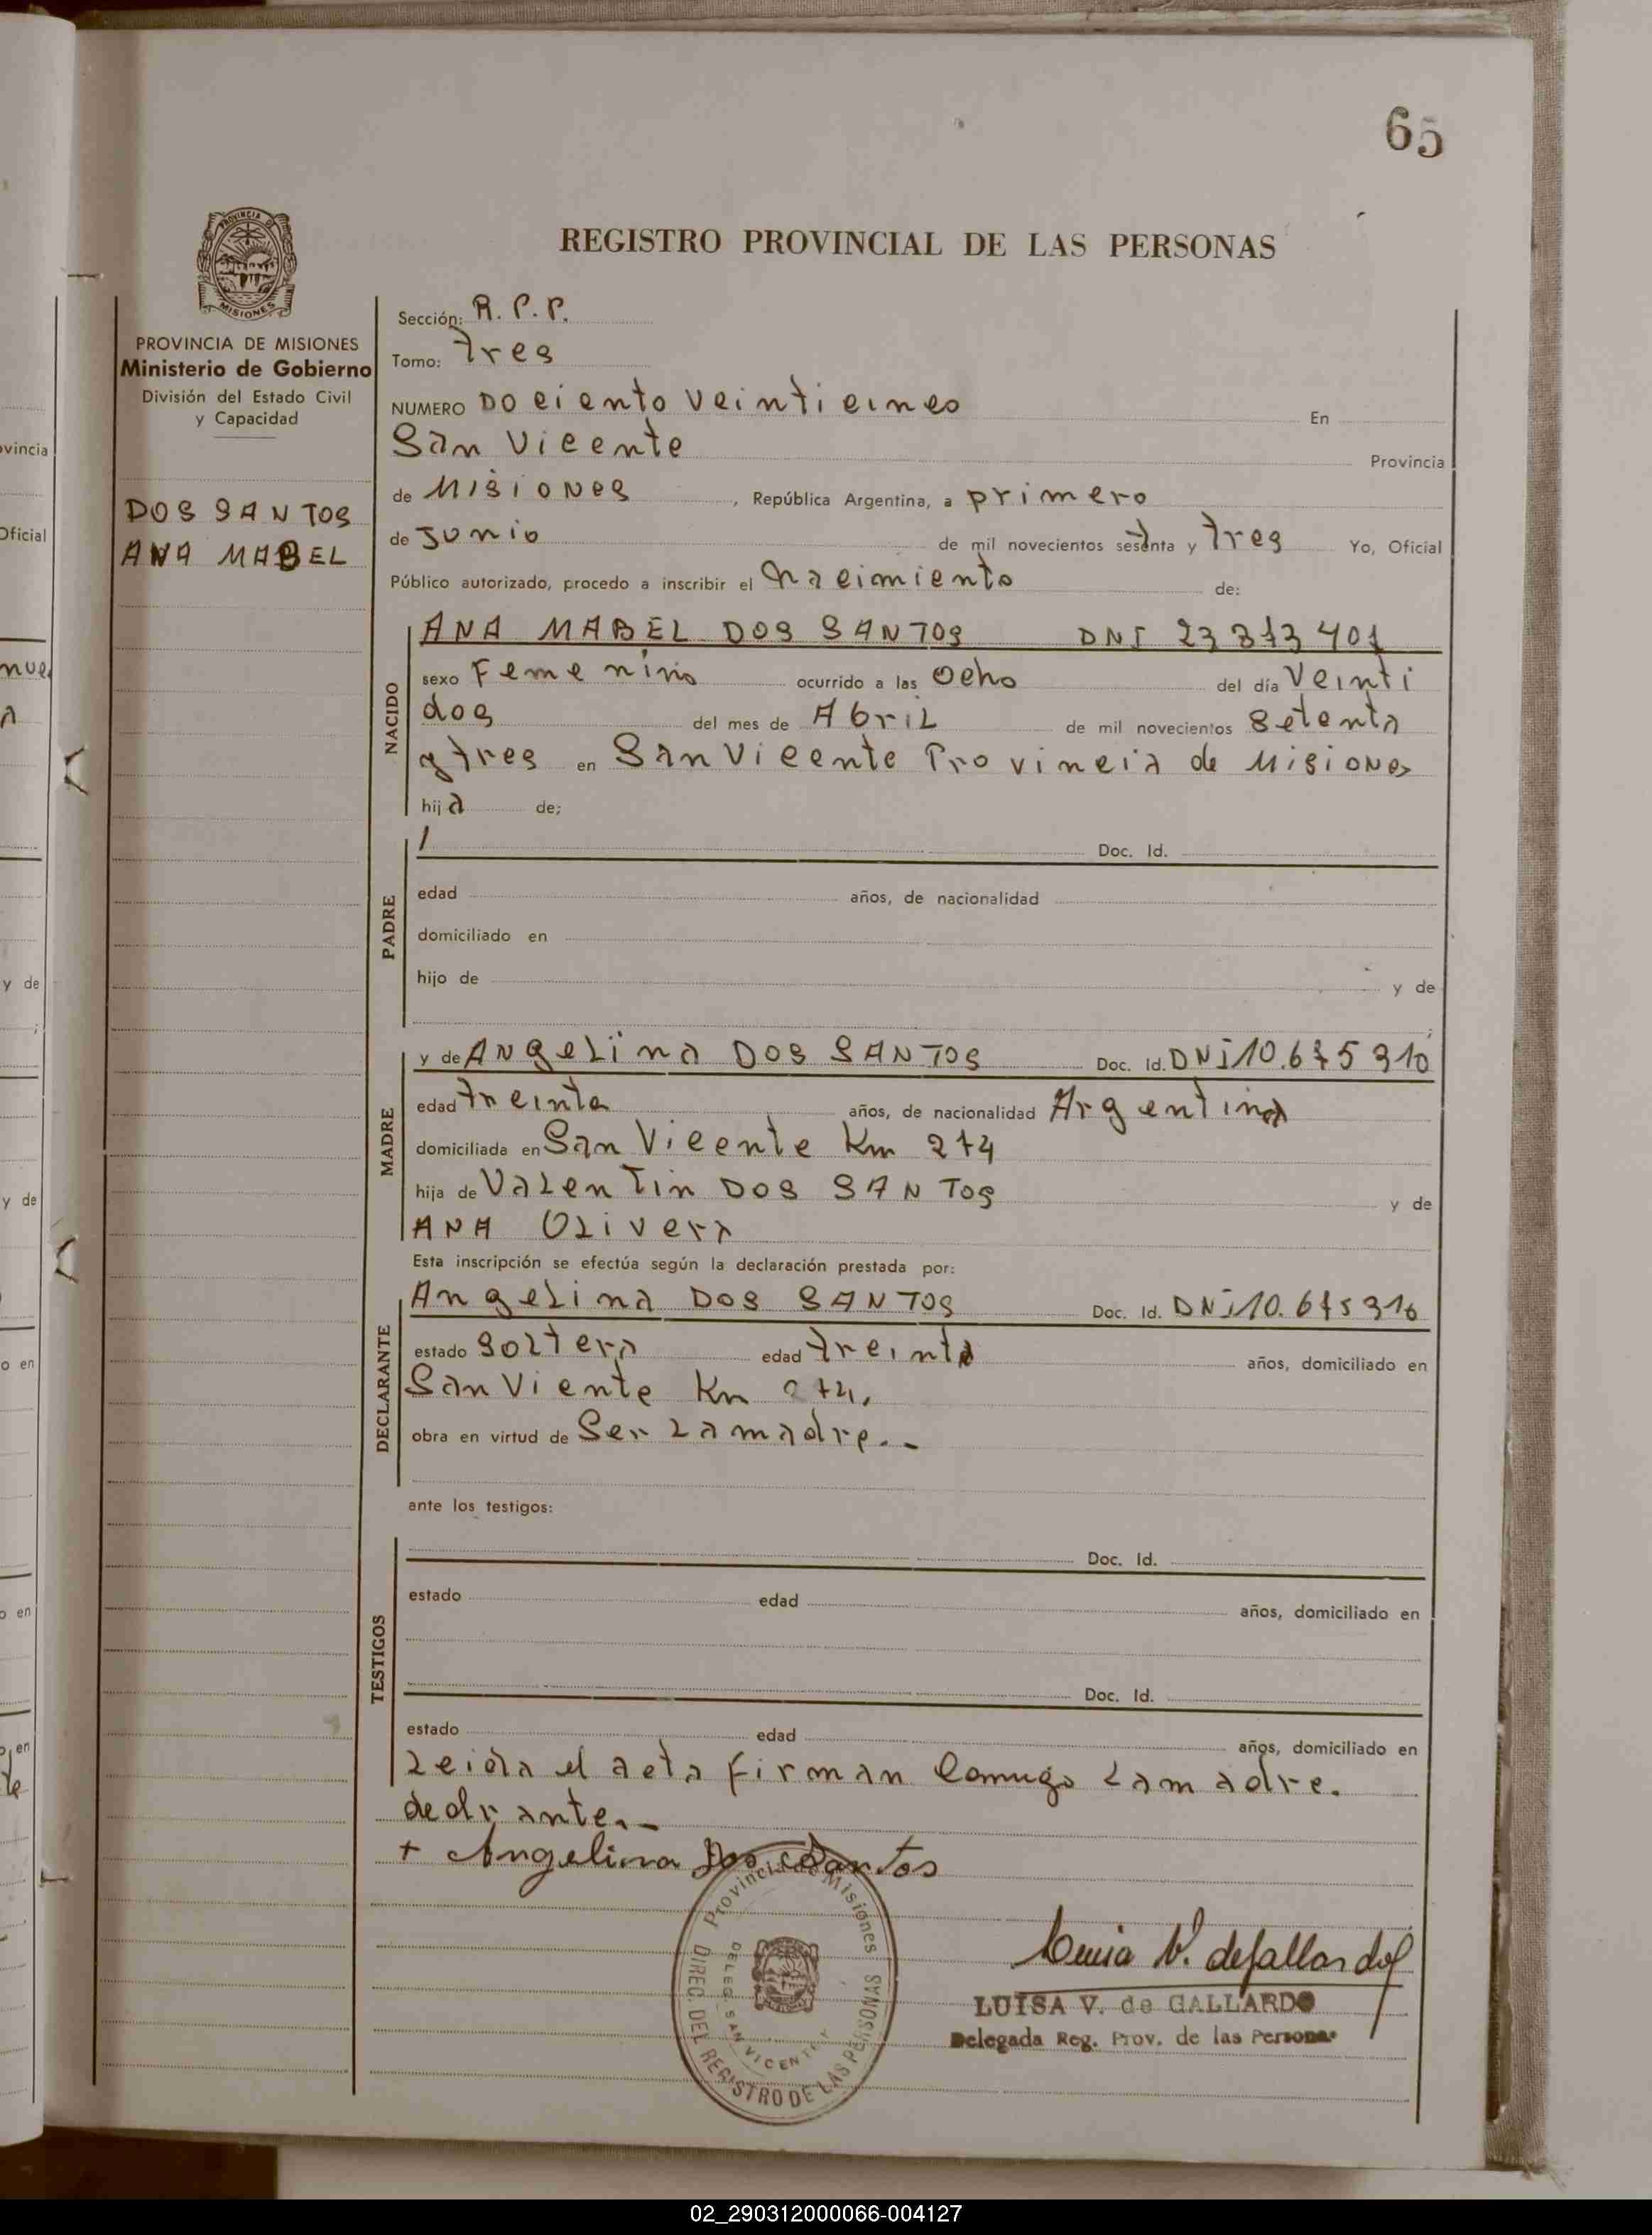 65
REGISTRO PROVINCIAL DE LAS PERSONAS
PROVINCIA DE MISIONES
Ministerio de Gobierno
División del Estado Civil
y Capacidad
DOS SANTOS
ANA MABEL
Sección: R. P. P.
Tomo: tres
NUMERO Dociento veinticinco En
San Vicente Provincia
de Misiones, República Argentina, a primero
de Junio de mil novecientos setenta y tres Yo, Oficial
Público autorizado, procedo a inscribir el nacimiento de:
NACIDO
ANA MABEL DOS SANTOS DNI 23 373 401
sexo Femenino ocurrido a las ocho del día Veinti
dos del mes de Abril de mil novecientos setenta
y tres en San Vicente Provincia de Misiones
hija de;
PADRE
/ Doc. Id.
edad años, de nacionalidad
domiciliado en
hijo de y de
;
MADRE
y de Angelina DOS SANTOS Doc. Id. DNI 10.675 310
edad treinta años, de nacionalidad Argentina
domiciliada en San Vicente Km 274
hija de Valentin DOS SANTOS y de
ANA Olivera
Esta inscripción se efectúa según la declaración prestada por:
DECLARANTE
Angelina DOS SANTOS Doc. Id. DNI 10.675 310
estado soltera edad treinta años, domiciliado en
San Viente Km 274,
obra en virtud de Ser la madre.-
ante los testigos:
TESTIGOS
Doc. Id.
estado edad años, domiciliado en
Doc. Id.
estado edad años, domiciliado en
Leida el acta firman Comugo La madre.
dedrante.-
+ Angelina Dos Santos
Provincia de Misiones
DIREC. DEL REGISTRO DE LAS PERSONAS
DELEG. SAN VICENTE
Luisa V. de Gallardo
LUISA V. de GALLARDO
Delegada Reg. Prov. de las Personas
02_290312000066-004127